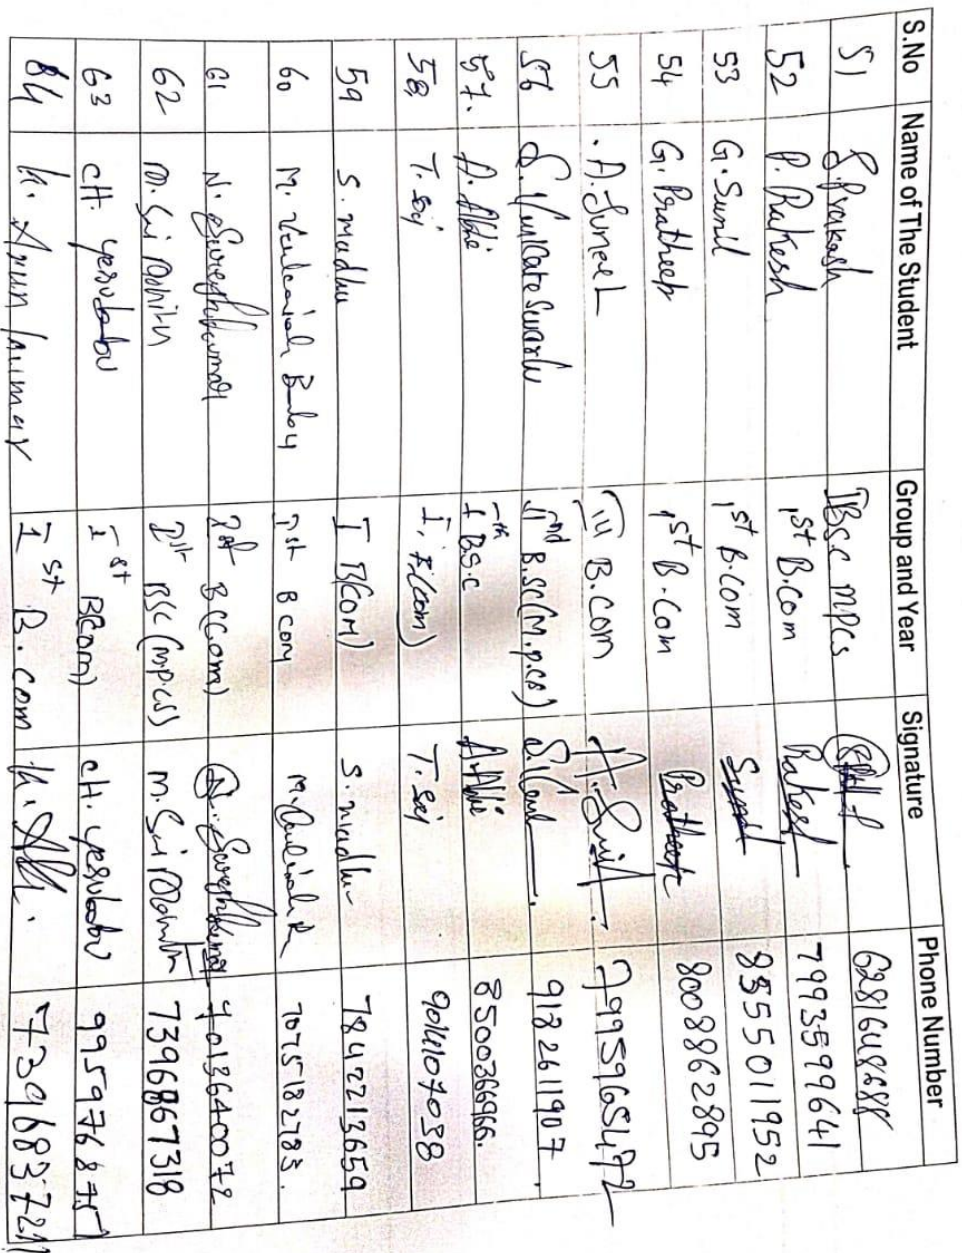 S.No Name of The Student Group and Year Signature Phone Number
51 S. Prakash IBSC MPCS 6281648688
52 P. Rakesh 1st B.Com Rakesh 7993599641
53 G. Sunil 1st B.Com Sunil 8555011952
54 G. Pratheep 1st B.Com Pratheep 8008862895
55 A. Suneel III B.Com 7995965472
56 S. Venkateswarlu IInd B.SC(M.P.CS) 9182611907
57. BSC 8500366966.
58 T. Sai I, B(Com) T. Sai 9014107038
59 S. madhu I B(COM) S. madhu 7842213659
60 M. 1st B com 7075182783.
61 N. Sureshkumar 1st B(Com) N. Sureshkumar 7013640072
62 M. Sai 1st BSC (MPCS) M. Sai 7396867318
63 CH. yesubabu I st BCom) CH. yesubabu 9959768757
64 K. Arun kumar I st B.com